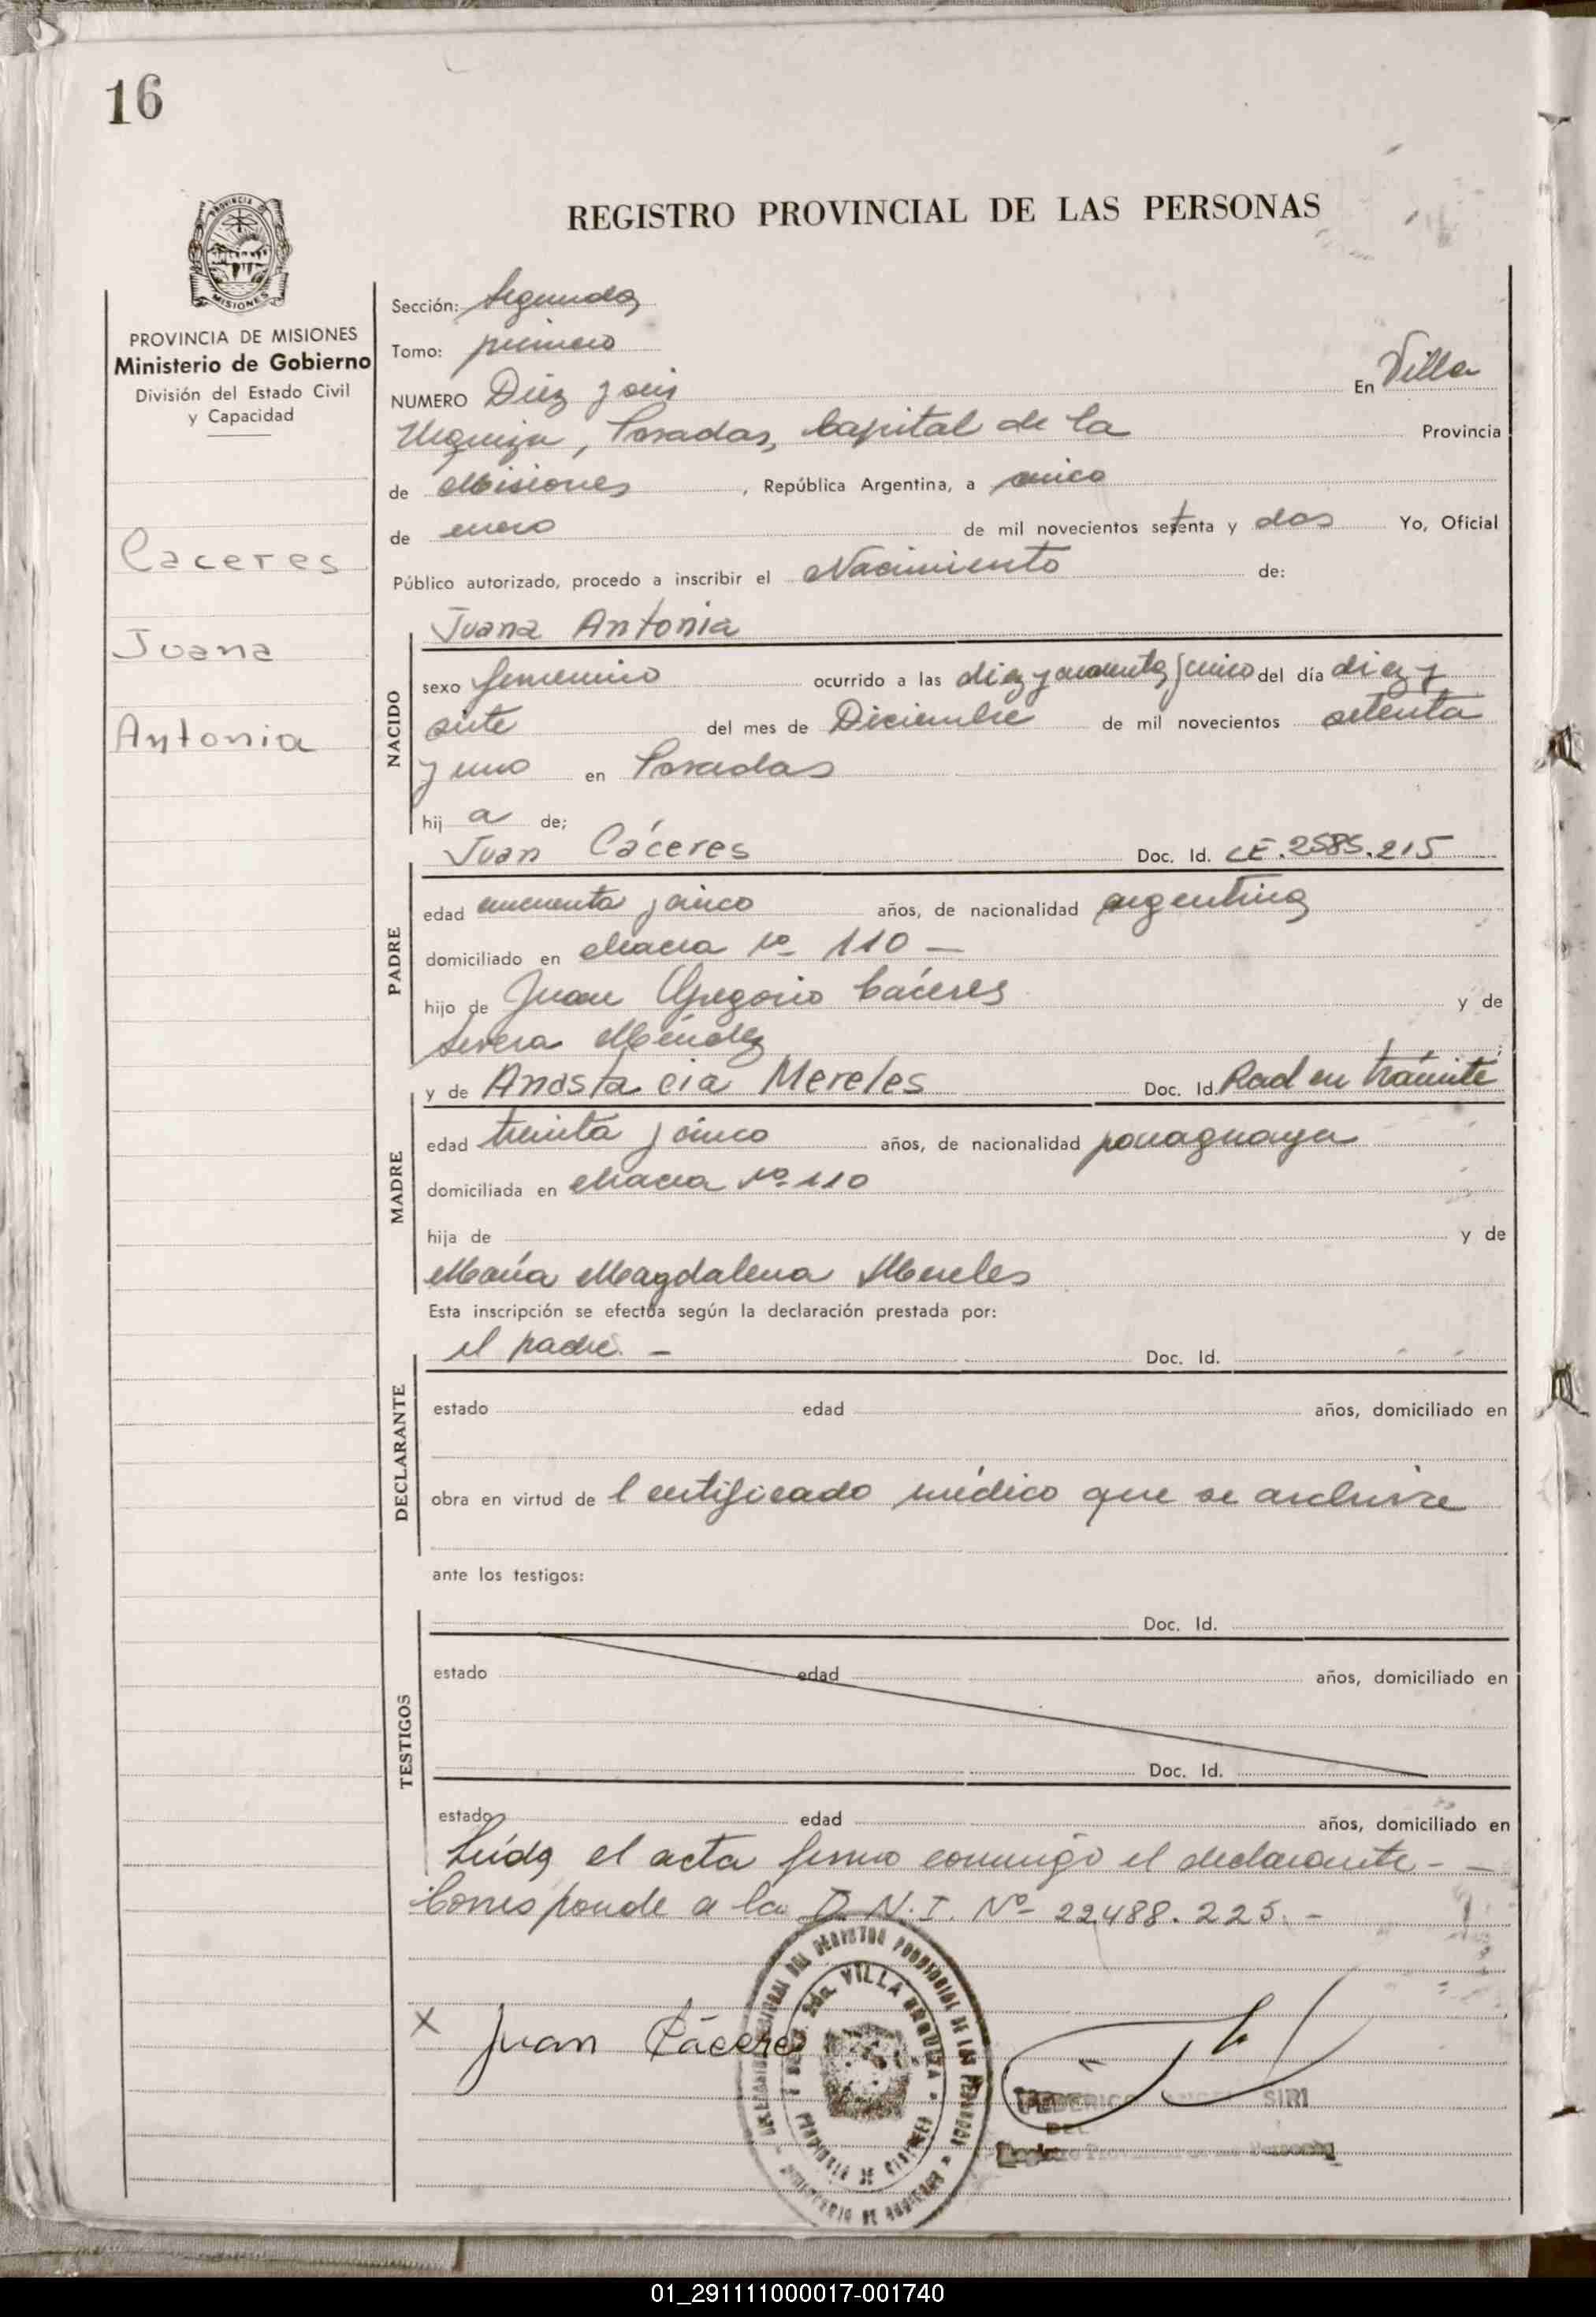 16
REGISTRO PROVINCIAL DE LAS PERSONAS
PROVINCIA DE MISIONES
Ministerio de Gobierno
División del Estado Civil
y Capacidad
Caceres
Juana
Antonia
Sección: Segunda
Tomo: primero
NUMERO Diez y seis En Villa
Urquiza, Posadas, Capital de la Provincia
de Misiones, República Argentina, a cinco
de enero de mil novecientos setenta y dos Yo, Oficial
Público autorizado, procedo a inscribir el Nacimiento de:
Juana Antonia
NACIDO
sexo femenino ocurrido a las diez y cuarenta y cinco del día diez y
siete del mes de Diciembre de mil novecientos setenta
y uno en Posadas
hij a de;
Juan Cáceres Doc. Id. LE.2585.215
PADRE
edad cincuenta y cinco años, de nacionalidad argentina
domiciliado en Chacra Nº 110 —
hijo de Juan Gregorio Cáceres y de
Severa Méndez
y de Anastacia Mereles Doc. Id. Rad en trámite
MADRE
edad treinta y cinco años, de nacionalidad paraguaya
domiciliada en Chacra Nº 110
hija de y de
María Magdalena Mereles
Esta inscripción se efectúa según la declaración prestada por:
el padre. — Doc. Id.
DECLARANTE
estado edad años, domiciliado en
obra en virtud de l certificado médico que se archiva
ante los testigos:
Doc. Id.
TESTIGOS
estado edad años, domiciliado en
Doc. Id.
estado edad años, domiciliado en
Leída el acta firma conmigo el declarante - -
Corresponde a la D.N.I. Nº 22488.225. -
x Juan Cáceres
2da. VILLA URQUIZA
PROVINCIA DE MISIONES
MINISTERIO DE GOBIERNO
FEDERICO ANGEL SIRI
Registro Provincial de las Personas
01_291111000017-001740